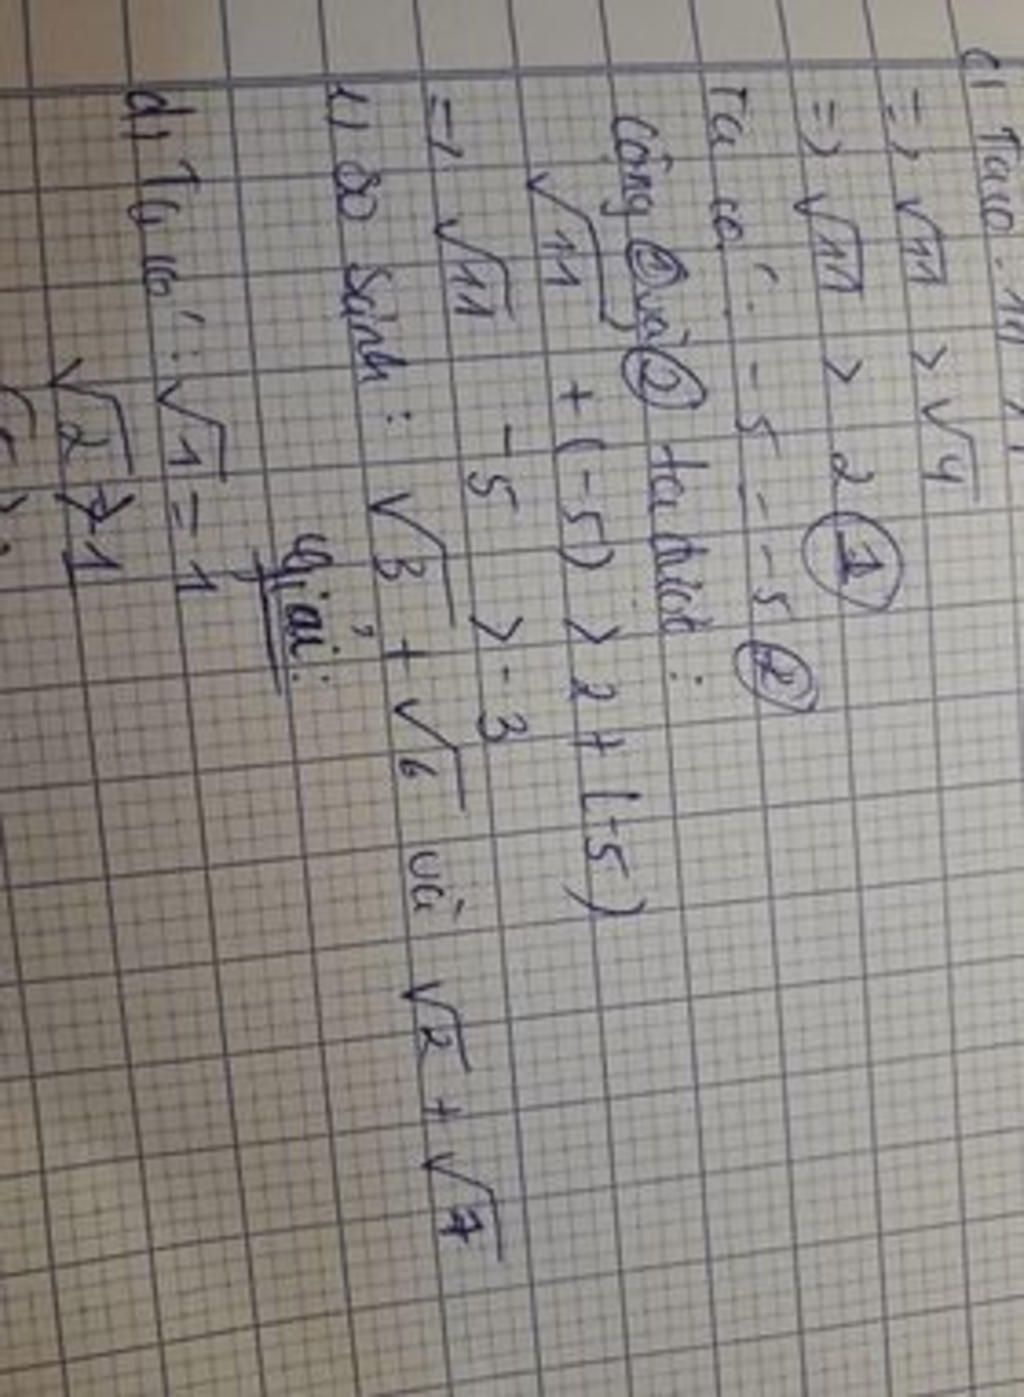 c) Ta có: 11 > 4
=> √11 > √4
=> √11 > 2 ①
Ta có: -5 = -5 ②
Cộng ① và ② ta được:
√11 + (-5) > 2 + (-5)
=> √11 - 5 > -3
So Sánh: √3 + √6 và √2 + √7
Giải:
d) Ta có: √1 = 1
√2 > 1